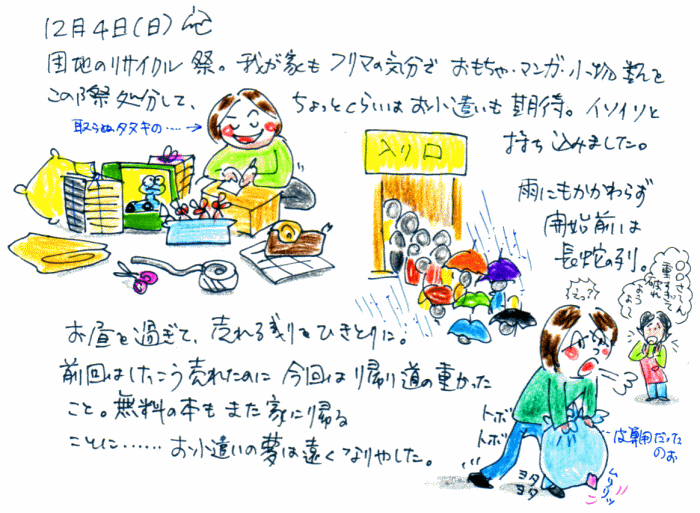 12月4日(日)
団地のリサイクル祭。我が家もフリマの気分で おもちゃ・マンガ・小物類を
この際処分して、ちょっとくらいはお小遣いも期待。イソイソと
持ち込みました。
取らぬタヌキの‥‥→
入り口
雨にもかかわらず
開始前は
長蛇の列。
〇〇さ〜ん
重すぎて
破れ
そうよ〜
えっ?
お昼を過ぎて、売れ残りをひきとりに。
前回はけっこう売れたのに 今回は帰り道の重かった
こと。無料の本もまた家に帰る
ことに‥‥‥ お小遣いの夢は遠くなりやした。
トボ
トボ
ヨタ
ヨタ
皮算用だった
のお